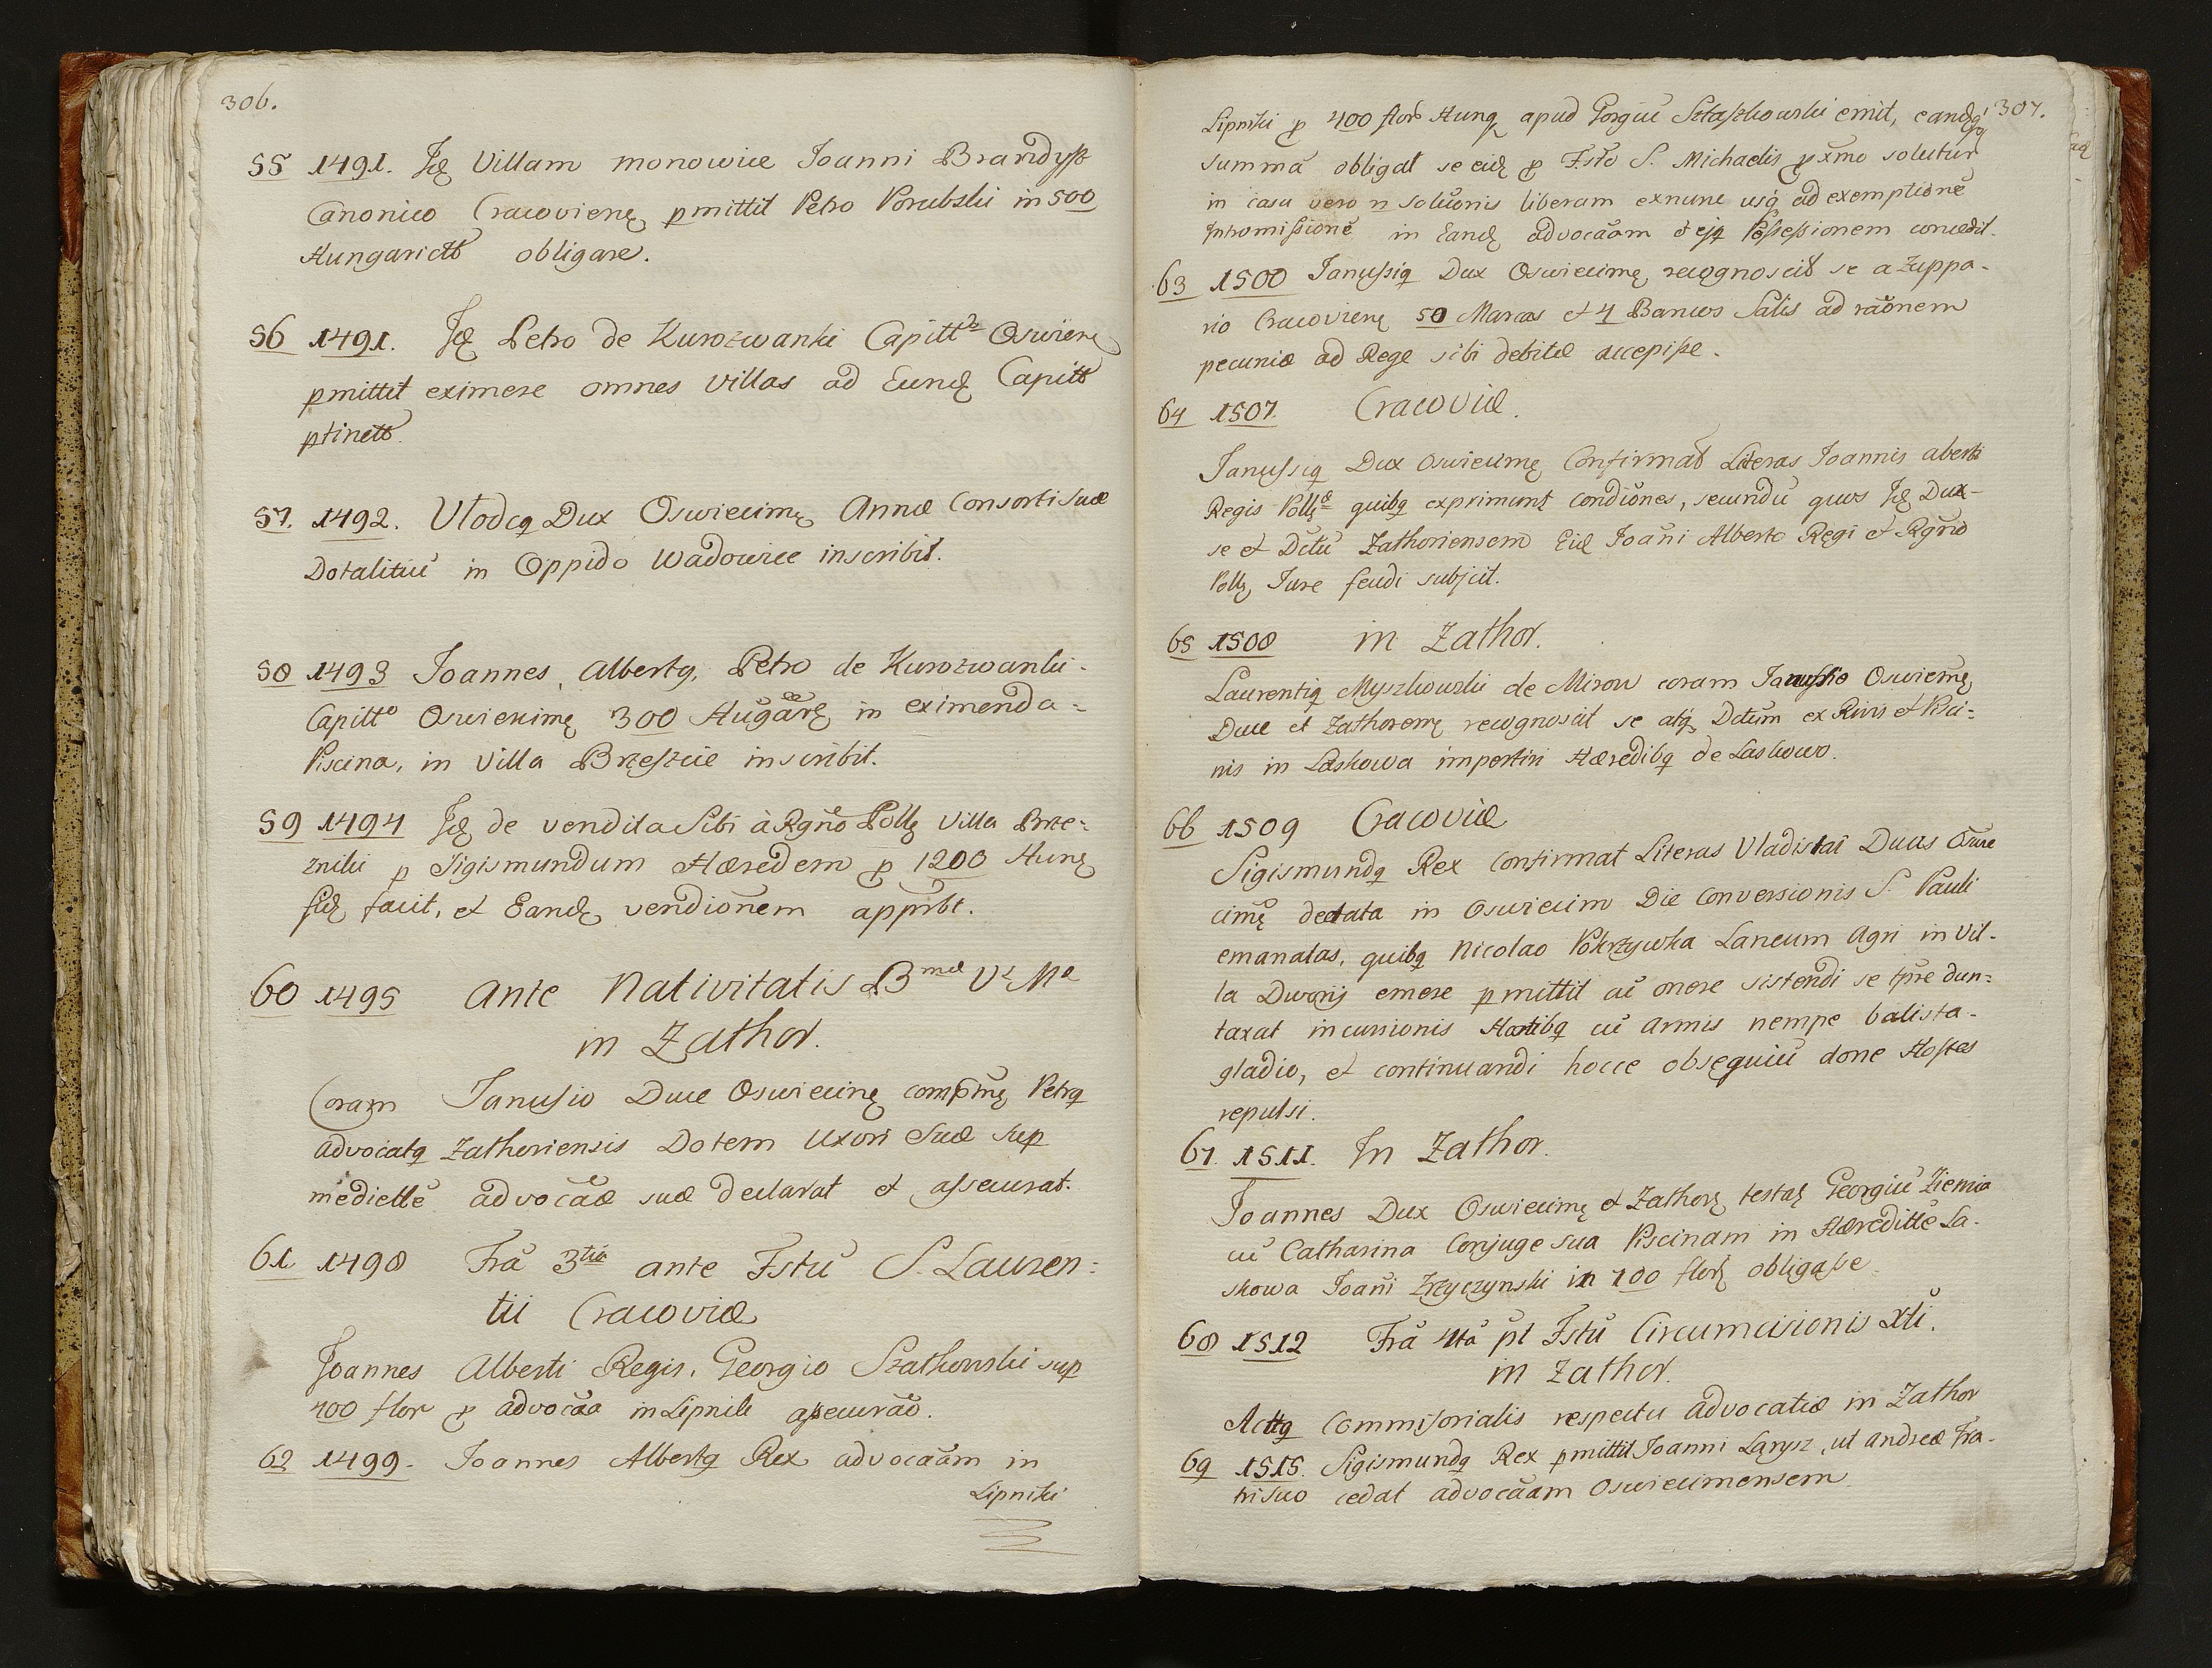 306.
55 1491. Idę Villam monowice Joanni Brandysz
Canonico Cracovienę pmittit Petro Porubski in 500
Hungarictb obligare.
56 1491. Idę Petro de Kurozwanki Capitt Oswienę
pmittit eximere omnes villas ad Eundę Capitt
ptinett.
57. 1492. Vlodcq Dux Oswiecimę Annæ Consorti Suæ
Dotalitiū in Oppido Wadowice inscribit.
58 1493 Joannes Albertq, Petro de Kurozwanki-
Capittō Oswiecimę 300 Hūgāre in eximenda=
Piscina, in Villa Brzeszcie inscribit.
59 1494 Idę de vendita Sibi à Rgño Pollę Villa Brze=
znili p Sigismundum Hæredem p 1200 Hunę
fidę facit, et Eandę vendiōnem appībt.
60 1495 Ante Nativitatis Bmæ V. Mæ
in Zathor.
Coram Janusio Duce Oswiecimę compīnę Petrq
advocatq Zathoriensis Dotem Uxori Suæ sup
mediettē advocāæ suæ declarat et assecurat.
61 1498 Frā 3tiā ante Fstū S. Lauren=
tii Cracoviæ
Joannes Alberti Regis, Georgio Szathowski sup
400 flor p advocāa in Lipnik assecurāō.
62 1499. Joannes Albertq Rex advocaām in
Lipniki
307.
Lipniki p 400 flor Hunq apud Gorgiū Sstaszkowski emit, eandęq
summā obligat se eidę p Fstō S. Michaelis pxīmo solutur
in casu vero n̄ solūonis liberam exnunc usq ad exemptionē
Intromissionē in Eandę advocāam et ejq Possessionem concedit.
63 1500 Janussiq Dux Oswiecimę recognoscit se a Zuppa-
rio Cracovienę 50 Marcas et 4 Bancos Salis ad raōnem
pecuniæ ad Rege sibi debitæ accepisse.
64 1507. Cracoviæ.
Janussiq Dux Oswiecimę Confirmat Literas Joannis aberti
Regis Pollę quibq exprimunt condiōnes, secundū quos Idę Dux-
se et Dctū Zathoriensem Eidę Joañi Alberto Regi et Rgñō
Pollę Jure feudi subjcit.
65 1508 in Zathor.
Laurentiq Myszkowski de Mirow coram Janussio Oswiemę
Duce et Zathorenę recognoscit se atq Dctum ex Rivis et Pisci=
nis in Laskowa impertiri Hæredibq de Laskowo.
66 1509 Cracoviæ
Sigismundq Rex Confirmat Literas Vladislai Ducis Oswie
cimę dedata in Oswiecim Die Conversionis S. Pauli
emanatas, quibq Nicolao Pokrzywka Laneum Agri in Vil-
la Dworij emere pmittit cū onere sistendi se tpre dun=
taxat incursionis Hostibq cū armis nempe balista-
gladio, et continuandi hocce obsequiū donc Hostes
repulsi.
67. 1511. In Zathor.
Joannes Dux Oswiecimę et Zathorę testaę Georgiū Ziemia
cū Catharina Conjuge sua Piscinam in Hæredittē La-
skowa Joañi Zrzyczynski in 100 florę obligasse.
68 1512 Frā 4tā pt Fstū Circumcisionis Xti.
in Zathor.
Acttq Commissorialis respectu Advocatiæ in Zathor
69 1515. Sigismundq Rex pmittit Joanni Larysz, ut andreæ Fra-
tri suo cedat advocāam Oswiecimensem